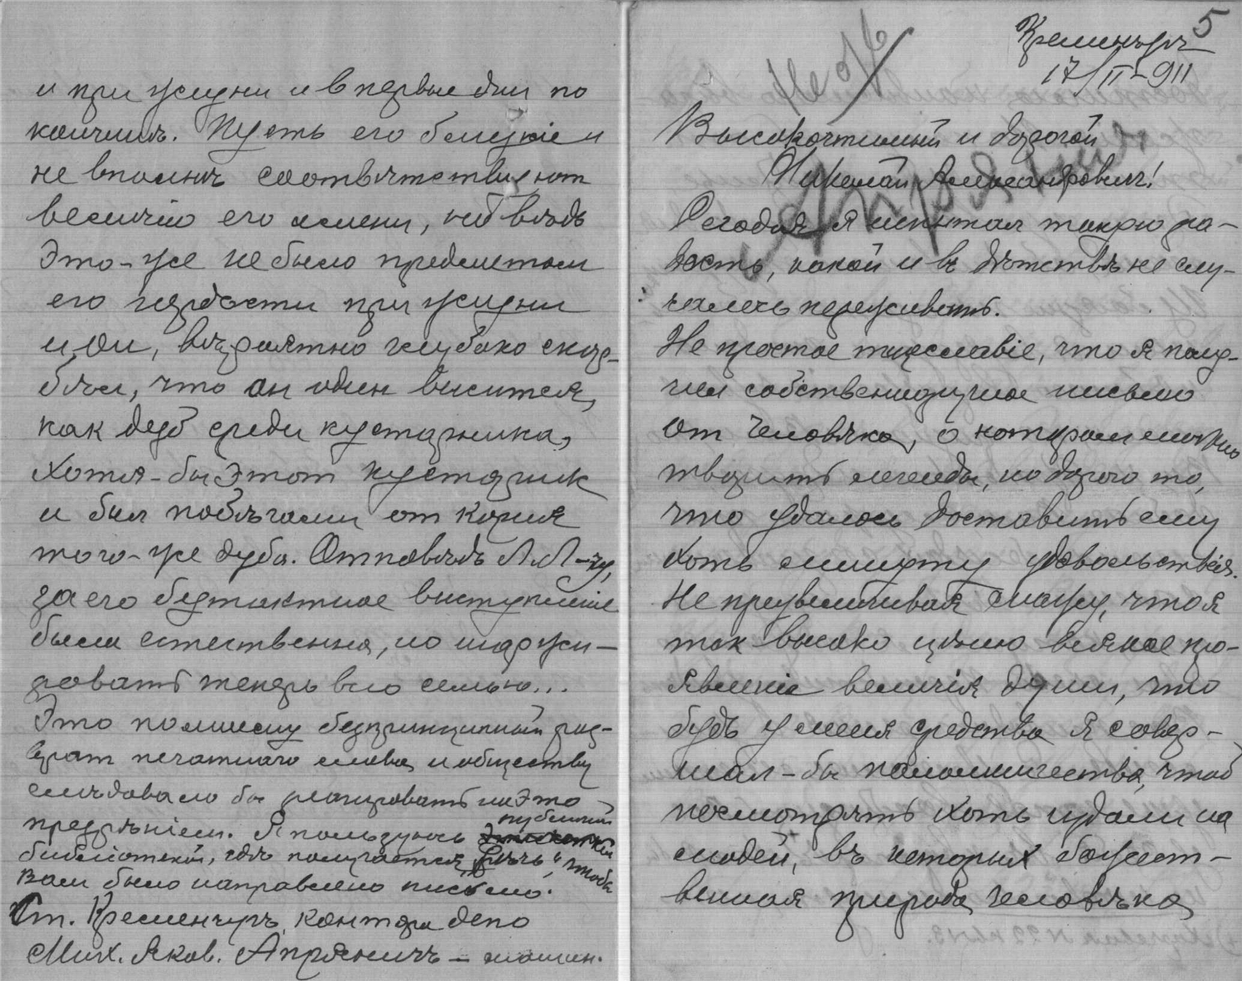 и при жизни и в первые дни по
кончинѣ. Пусть его близкіе и
не вполнѣ соотвѣтствуют
величію его имени, но вѣдь
Это-же не было предметом
его гордости при жизни
и он, вѣроятно глубоко скор-
бѣл, что он один высится,
как дуб среди кустарника,
Хотя-бы Этот кустарник
и был побѣгами от корня
того-же дуба. Отповѣдь Л Л-чу,
за его безтактное выступленіе
была естественна, но шаржи-
ровать теперь всю семью...
Это по моему безпринципный раз-
врат печатнаго слова и обществу
слѣдовало бы реагировать на Это
презрѣніем. Я пользуюсь
публичной
библіотекой, гдѣ получается „Рѣчь", чтобы
Вам было направлено письмо.
Ст. Кременчугъ, контора депо
Мих. Яков. Апряничъ – машин.
5
Кременчугъ
17/II-911
Высокочтимый и дорогой
Николай Александрович!
Сегодня я испытал такую ра-
дость, какой и въ дѣтствѣ не слу-
чалось переживать.
Не простое тщеславіе, что я полу-
чил собственноручное письмо
от Человѣка, о котором можно
творить легенды, но дорого то,
что удалось доставить ему
хоть минуту удовольствія.
Не преувеличивая скажу, что я
так высоко цѣню всякое про-
явленіе величія души, что
будь у меня средства я совер-
шал-бы паломничества, чтоб
посмотрѣть хоть издали на
людей, въ которых божест-
венная природа человѣка,